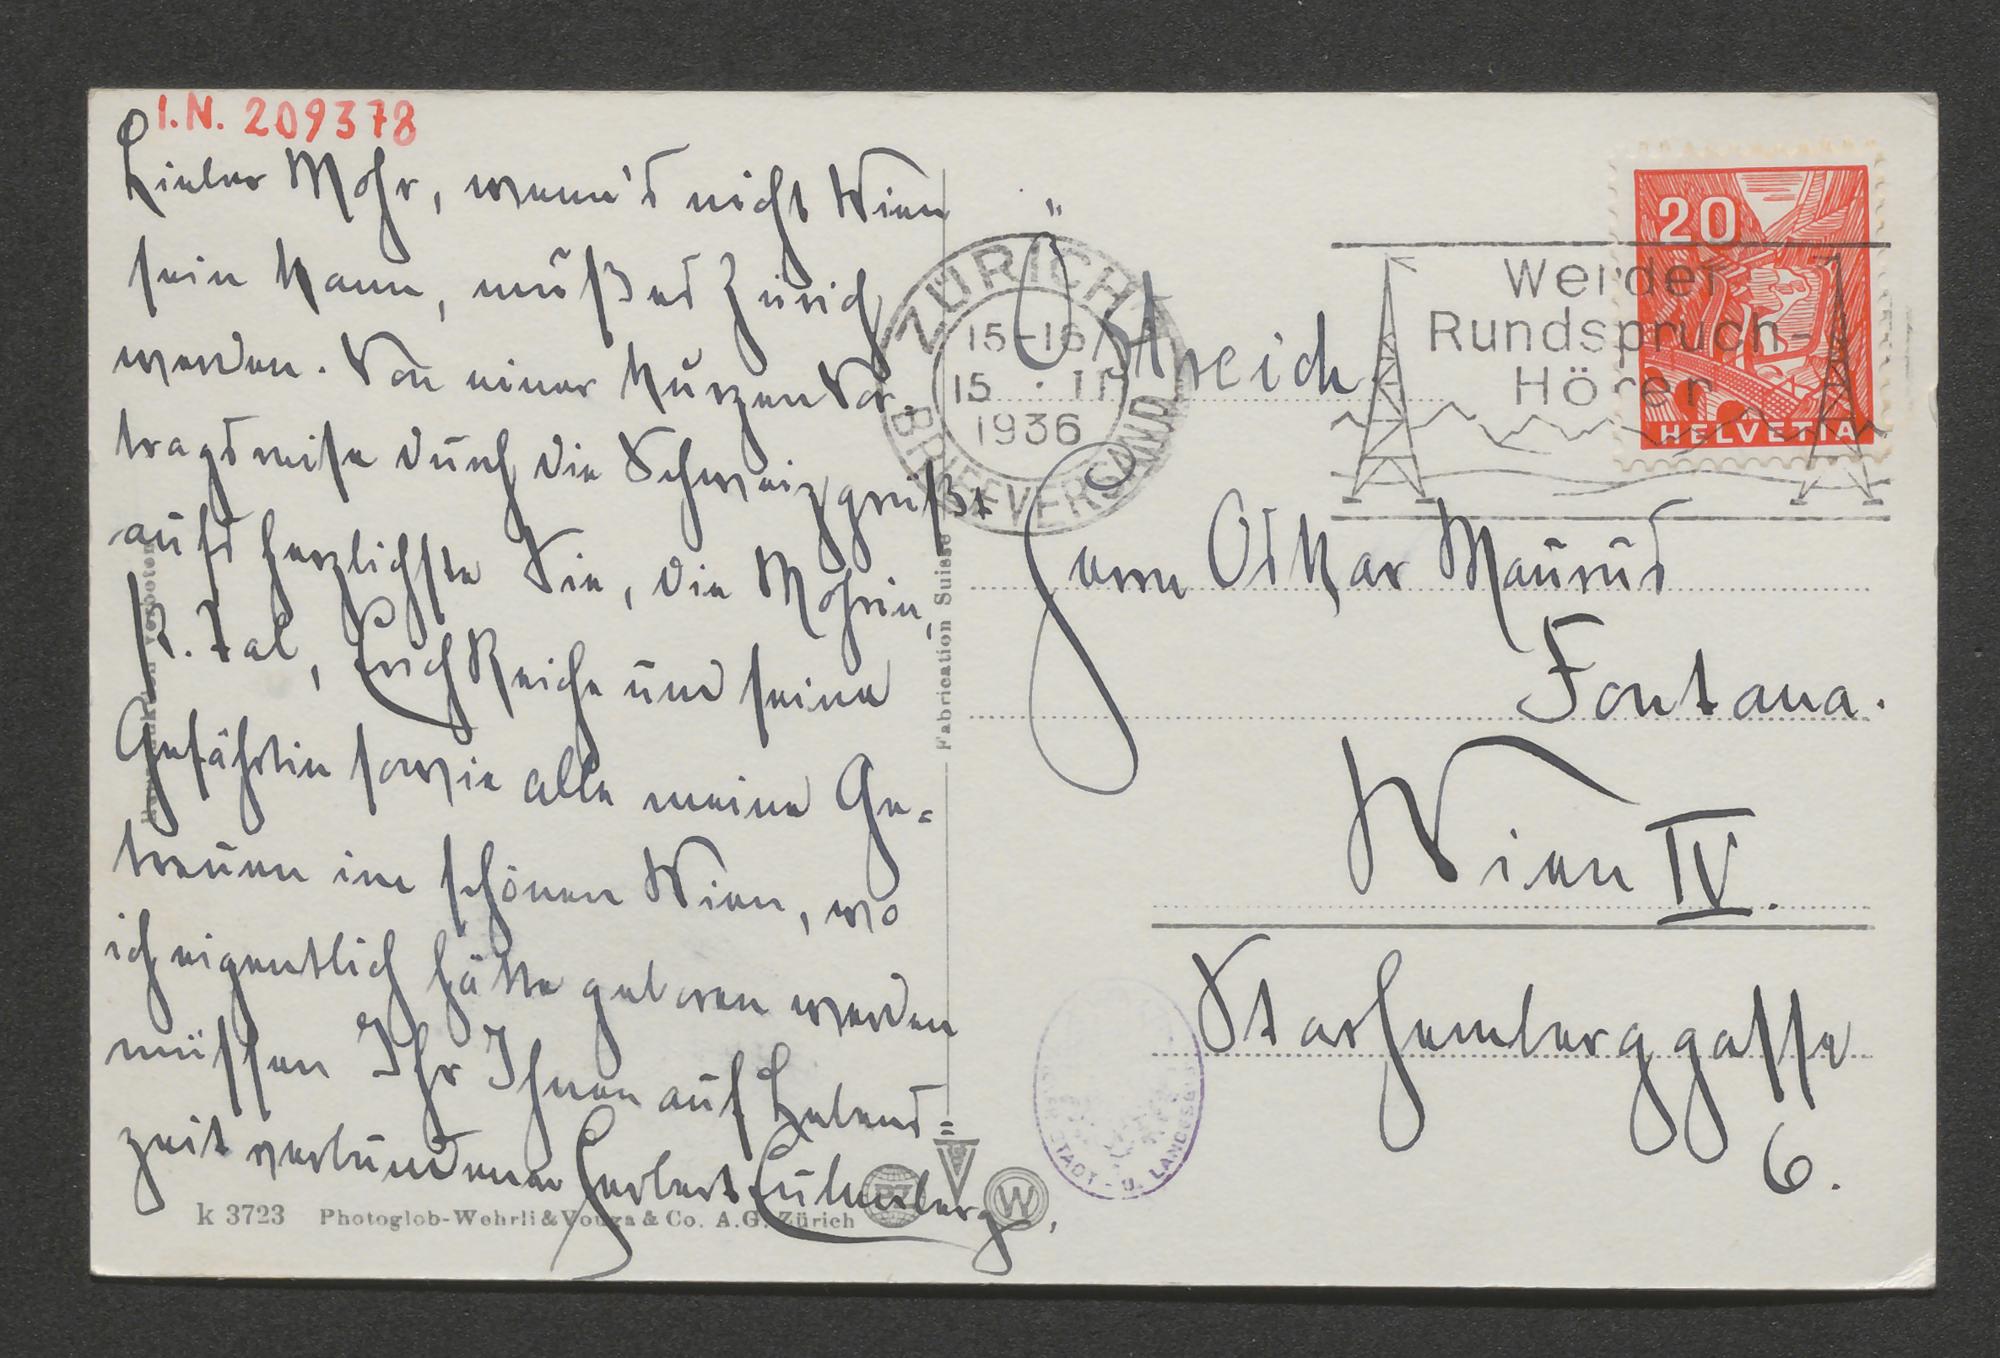 I.N. 209378
Lieber Mohr, wenn's nicht Wien
sein kann, muß es Zürich
werden. Von einer kurzen Vor-
tragsreise durch die Schweiz grüßt
aufs herzlichste Sie, die Mohrin,
Erich Reiche und seine
Gefährtin sowie alle meine Ge=
treuen im schönen Wien, wo
ich eigentlich hätte geboren werden
müssen Ihr Ihnen auf Lebens=
zeit verbundener Herbert Eulenberg.
k 3723 Photoglob-Wehrli & Vouga & Co. A.G. Zürich
PZ
V
W
Fabrication Suisse
verboten
ZÜRICH
15-16
15
1936
BRIEFVERSAND
Werdet
Rundspruch-
Hörer
20
HELVETIA
Östreich
Herrn Oskar Maurus
Fontana.
Wien IV.
Starhemberggasse
6.
STADT- U. LANDESBI